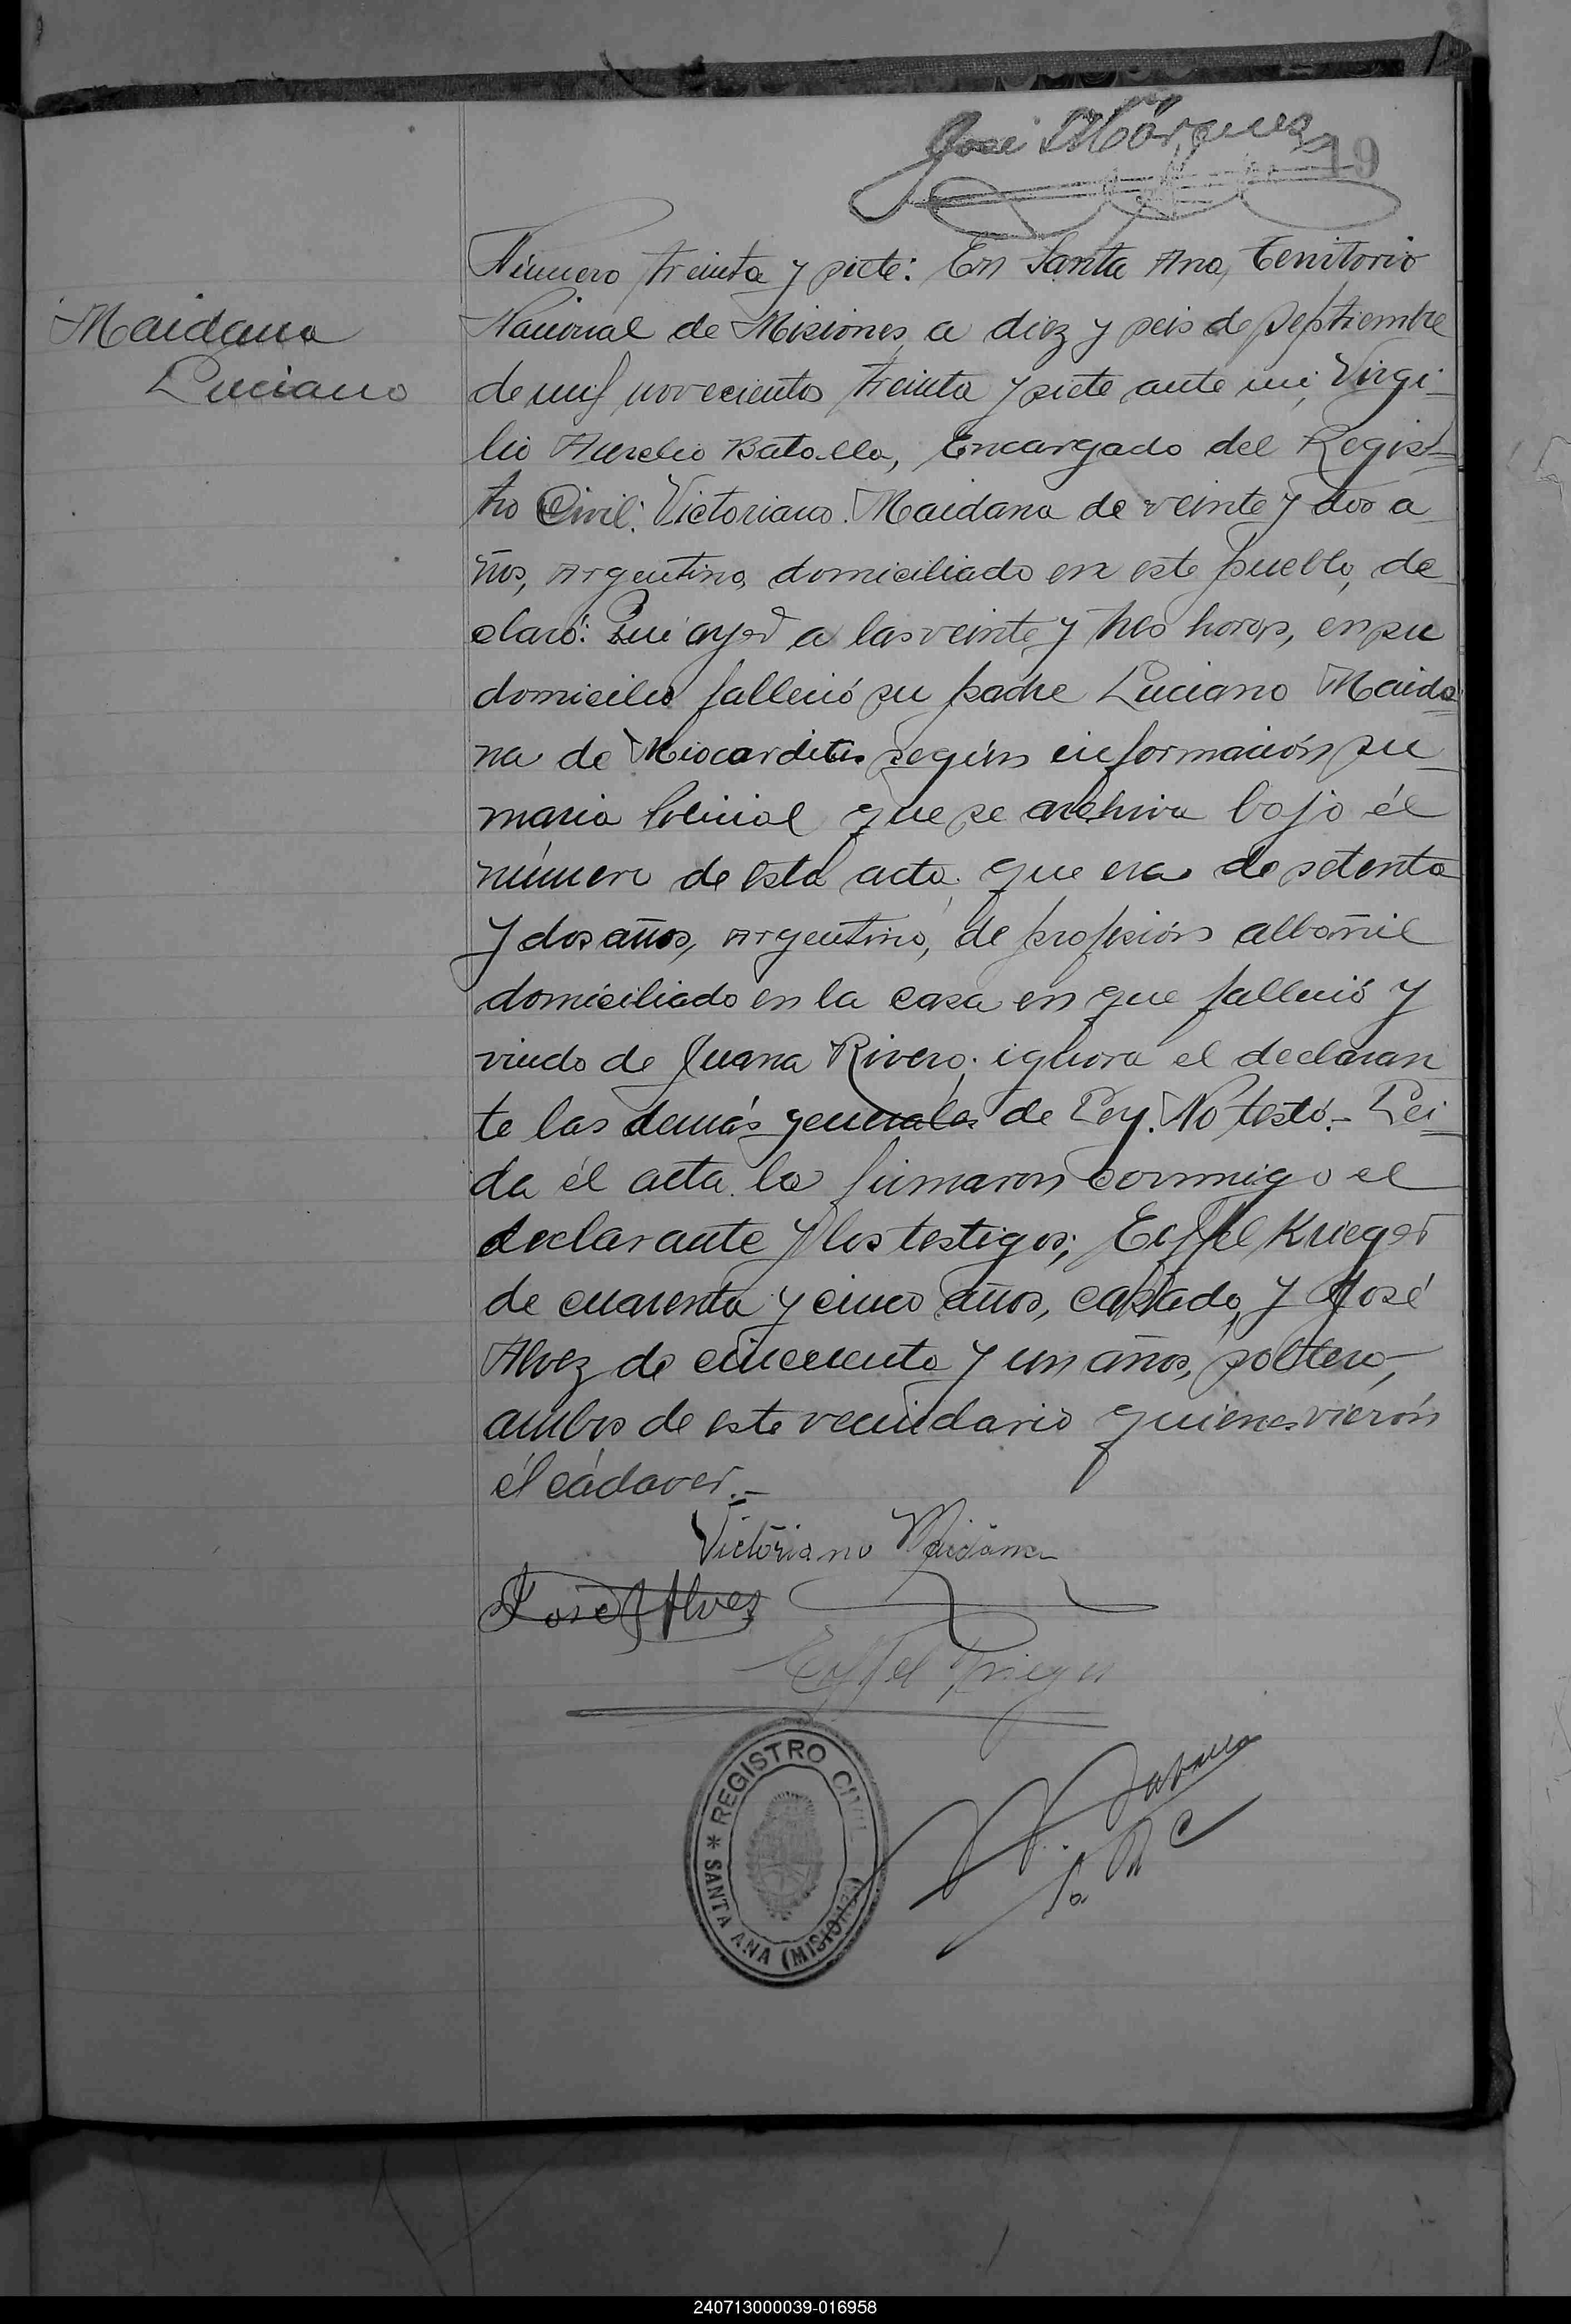 José Márquez
19
Maidana
Luciano
Número treinta y siete: En Santa Ana, Territorio
Nacional de Misiones, a diez y seis de septiembre
de mil novecientos treinta y siete ante mi, Virgi-
lio Aurelio Batalla, Encargado del Regis-
tro Civil: Victoriano Maidana de veinte y dos a
ños, Argentino, domiciliado en este pueblo, de
claró: Que ayer a las veinte y tres horas, en su
domicilio falleció su padre Luciano Maida
na de Miocarditis según información su
maria Policial que se archiva bajo él
número de esta acta; que era de setenta
y dos años, Argentino, de profesión albañil
domiciliado en la casa en que falleció y
viudo de Juana Rivero; ignora el declaran
te las demás generales de Ley. No testó.- Lei-
da él acta la firmaron conmigo el
declarante y los testigos; Eiffel Krieger
de cuarenta y cinco años, casado, y José
Alvez de cincuenta y un años, soltero,
ambos de este vecindario quienes vierón
él cádaver.-
Victoriano Maidana
José Alvez
Eiffel Krieger
REGISTRO CIVIL
* SANTA ANA (MISIONES)